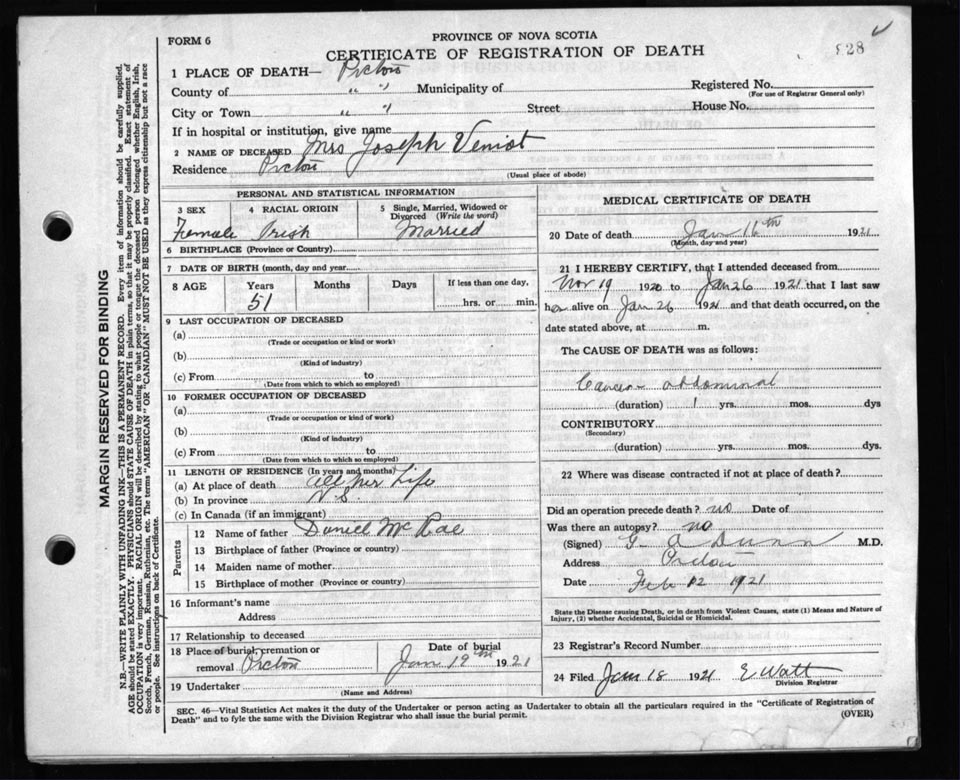 FORM 6
PROVINCE OF NOVA SCOTIA
CERTIFICATE OF REGISTRATION OF DEATH
828
1 PLACE OF DEATH— Pictou
Registered No.
(For use of Registrar General only)
County of " " Municipality of
City or Town " " Street House No.
If in hospital or institution, give name
2 NAME OF DECEASED Mrs Joseph Veniot
Residence Pictou
(Usual place of abode)
PERSONAL AND STATISTICAL INFORMATION
3 SEX 4 RACIAL ORIGIN 5 Single, Married, Widowed or Divorced (Write the word)
Female Irish Married
6 BIRTHPLACE (Province or Country)
7 DATE OF BIRTH (month, day and year)
8 AGE Years Months Days If less than one day,
51 hrs. or min.
9 LAST OCCUPATION OF DECEASED
(a)
(Trade or occupation or kind or work)
(b)
(Kind of industry)
(c) From to
(Date from which to which so employed)
10 FORMER OCCUPATION OF DECEASED
(a)
(Trade or occupation or kind of work)
(b)
(Kind of industry)
(c) From to
(Date from which to which so employed)
11 LENGTH OF RESIDENCE (In years and months)
(a) At place of death all her Life
(b) In province N S.
(c) In Canada (if an immigrant)
Parents
12 Name of father Daniel McRae
13 Birthplace of father (Province or country)
14 Maiden name of mother
15 Birthplace of mother (Province or country)
16 Informant's name
Address
17 Relationship to deceased
18 Place of burial, cremation or removal Pictou
Date of burial
Jan 19th 1921
19 Undertaker
(Name and Address)
MEDICAL CERTIFICATE OF DEATH
20 Date of death Jan 16th 1921
(Month, day and year)
21 I HEREBY CERTIFY, that I attended deceased from
Nov 19 1920 to Jan 26 1921 that I last saw
her alive on Jan 26 1921 and that death occurred, on the
date stated above, at m.
The CAUSE OF DEATH was as follows:
Cancer abdominal
(duration) 1 yrs. mos. dys
CONTRIBUTORY
(Secondary)
(duration) yrs. mos. dys.
22 Where was disease contracted if not at place of death?
Did an operation precede death? no Date of
Was there an autopsy? no
(Signed) G A Dunn M.D.
Address Pictou
Date Feb 12 1921
State the Disease causing Death, or in death from Violent Causes, state (1) Means and Nature of
Injury, (2) whether Accidental, Suicidal or Homicidal.
23 Registrar's Record Number
24 Filed Jan 18 1921 E Watt
Division Registrar
SEC. 46—Vital Statistics Act makes it the duty of the Undertaker or person acting as Undertaker to obtain all the particulars required in the "Certificate of Registration of
Death" and to fyle the same with the Division Registrar who shall issue the burial permit.
(OVER)
MARGIN RESERVED FOR BINDING
N.B.—WRITE PLAINLY WITH UNFADING INK—THIS IS A PERMANENT RECORD. Every item of information should be carefully supplied.
AGE should be stated EXACTLY. PHYSICIANS should STATE CAUSE OF DEATH in plain terms, so that it may be properly classified. Exact statement of
OCCUPATION is very important. RACIAL ORIGIN will be described by stating to what people or tongue the deceased person belonged whether English, Irish,
Scotch, French, German, Russian, Ruthenian, etc. The terms "AMERICAN" OR "CANADIAN" MUST NOT BE USED as they express citizenship but not a race
or people. See instructions on back of Certificate.